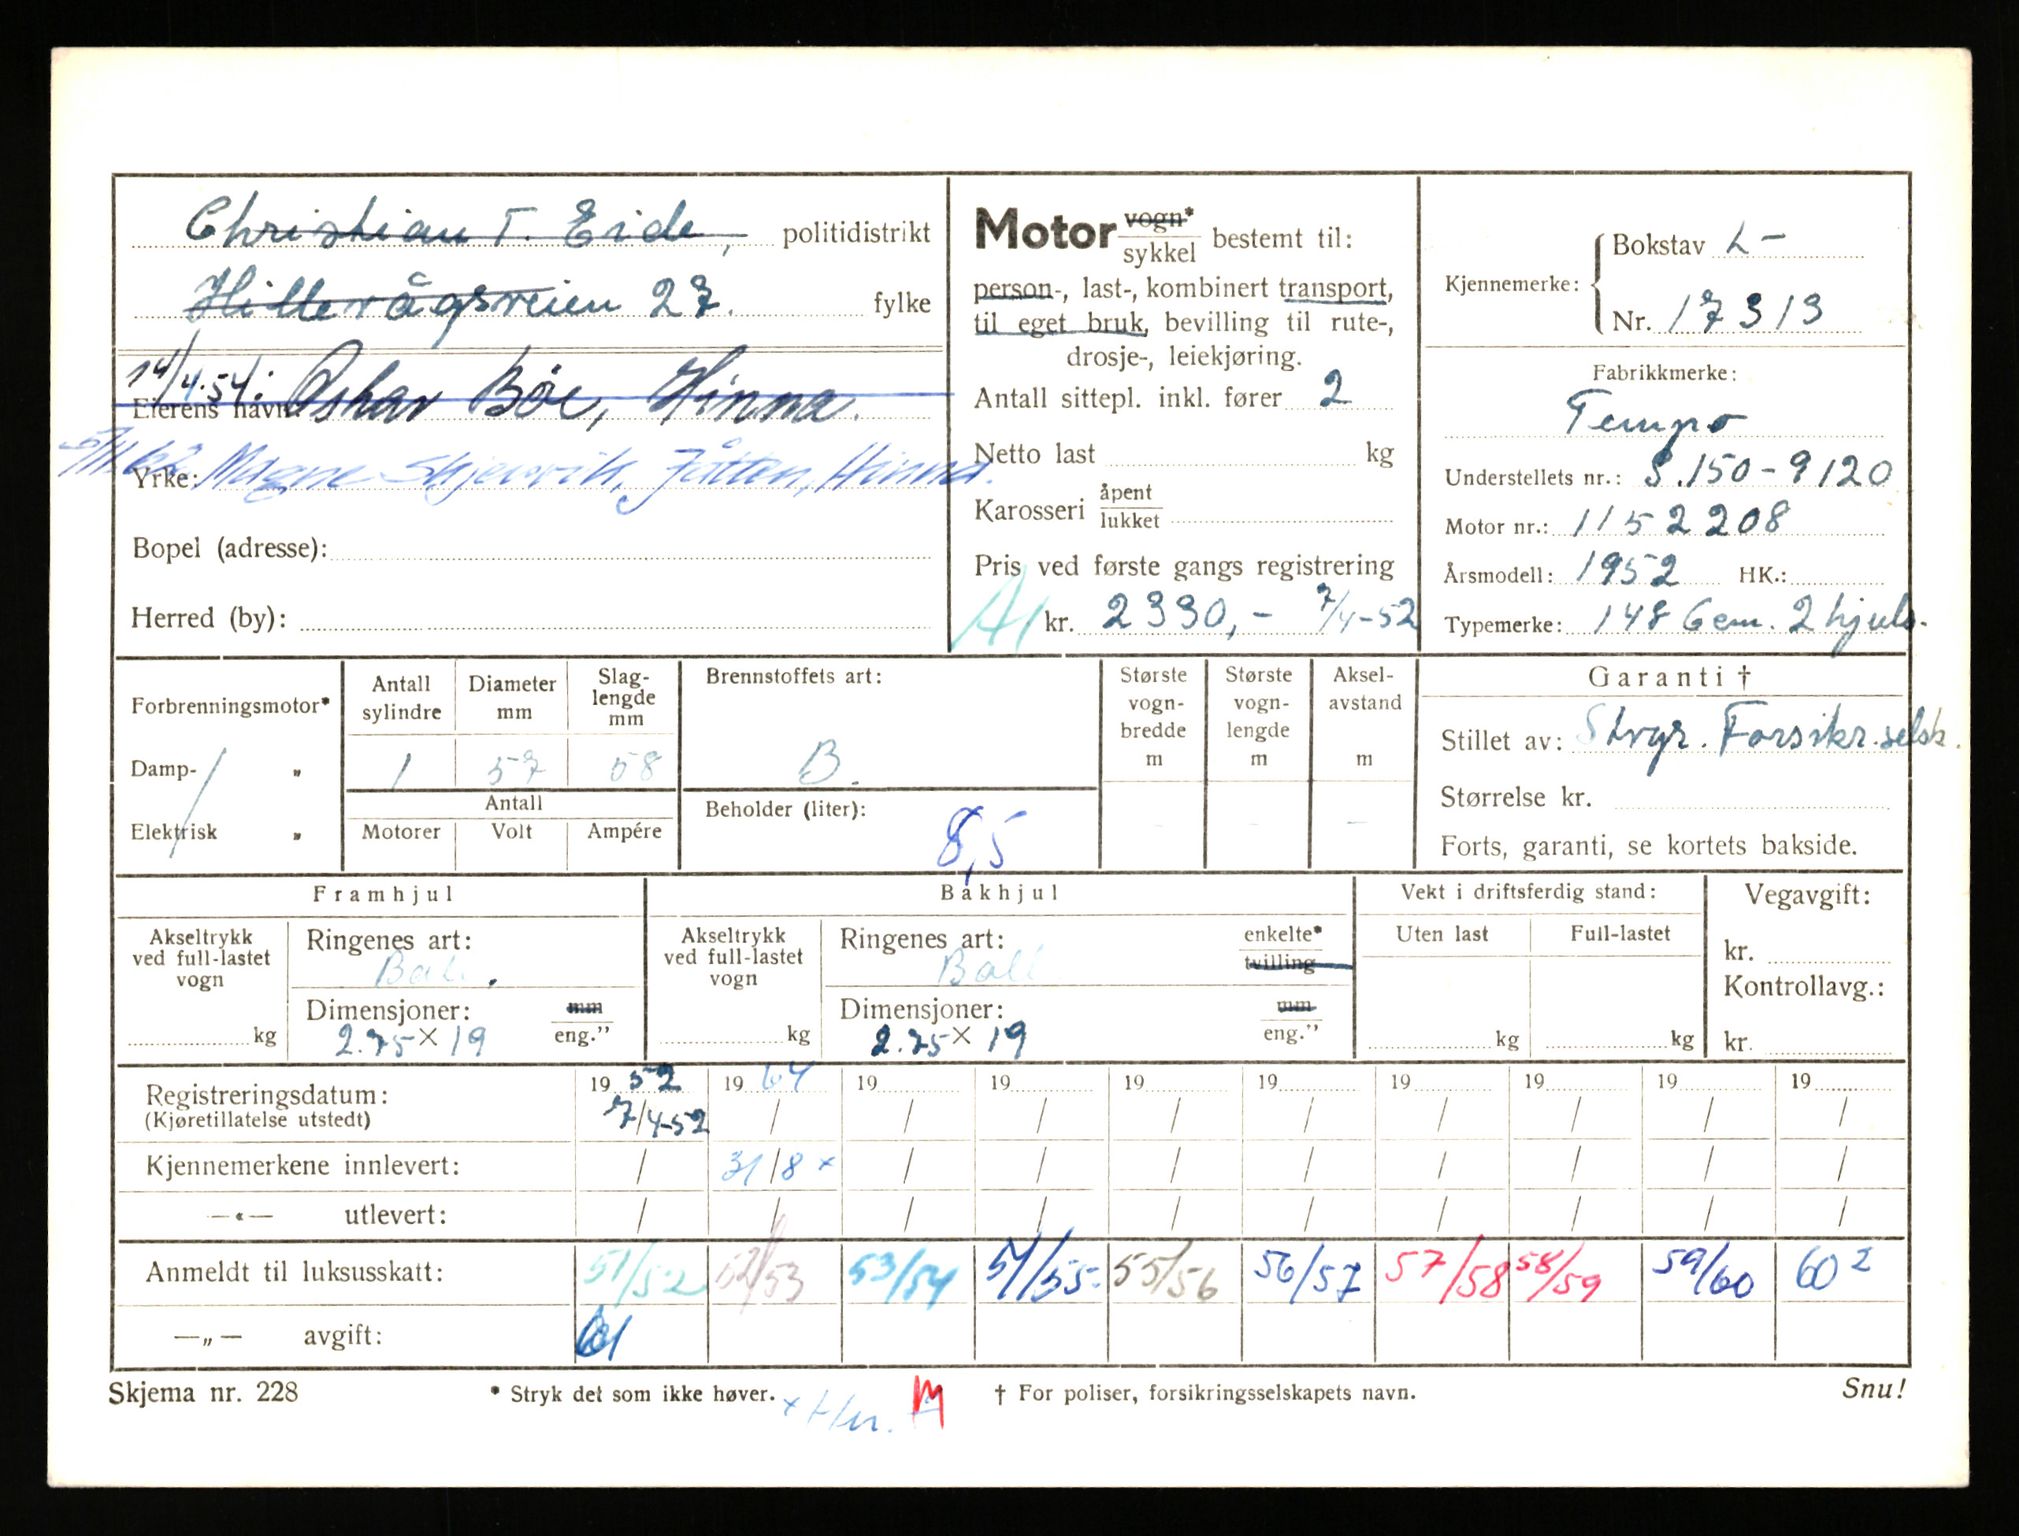 Christian T. Eide, politidistrikt
Hillevågsveien 27. fylke
14/4.54: Oskar Bőe, Hinna.
Eierens navn
5/11 62 Magne Skjervik, Jåtten, Hinna.
Yrke:
Bopel (adresse):
Herred (by):
Motor vogn* sykkel bestemt til:
person-, last-, kombinert transport,
til eget bruk, bevilling til rute-,
drosje-, leiekjøring.
Antall sittepl. inkl. fører 2
Netto last kg
Karosseri åpent lukket
Pris ved første gangs registrering
A1 kr. 2330,- 7/4-52
Kjennemerke: Bokstav L-
Nr. 17313
Fabrikkmerke:
Tempo
Understellets nr.: S.150-9120
Motor nr.: 1152208
Årsmodell: 1952 HK.:
Typemerke: 148 Gem. 2 hjuls.
Forbrenningsmotor*
Damp- „
Elektrisk „
Antall sylindre Diameter mm Slag-lengde mm
1 57 58
Antall
Motorer Volt Ampére
Brennstoffets art:
B.
Beholder (liter):
8,5
Største vogn-bredde m
Største vogn-lengde m
Aksel-avstand m
Garanti †
Stillet av: Storgr. Forsikr.selsk.
Størrelse kr.
Forts, garanti, se kortets bakside.
Framhjul
Akseltrykk ved full-lastet vogn
kg
Ringenes art:
Ball.
Dimensjoner: mm
2.75 x 19 eng.”
Bakhjul
Akseltrykk ved full-lastet vogn
kg
Ringenes art: enkelte*
Ball tvilling
Dimensjoner: mm
2.75 x 19 eng.”
Vekt i driftsferdig stand:
Uten last Full-lastet
kg kg
Vegavgift:
kr.
Kontrollavg.:
kr.
19 52 19 64 19 19 19 19 19 19 19 19
Registreringsdatum: 7/4-52 / / / / / / / / /
(Kjøretillatelse utstedt)
Kjennemerkene innlevert: / 31/8 x / / / / / / / /
—«— utlevert: / / / / / / / / / /
Anmeldt til luksusskatt: 51/52 52/53 53/54 54/55 55/56 56/57 57/58 58/59 59/60 60 2
—„— avgift: 61
Skjema nr. 228 * Stryk det som ikke høver. † For poliser, forsikringsselskapets navn. Snu!
M